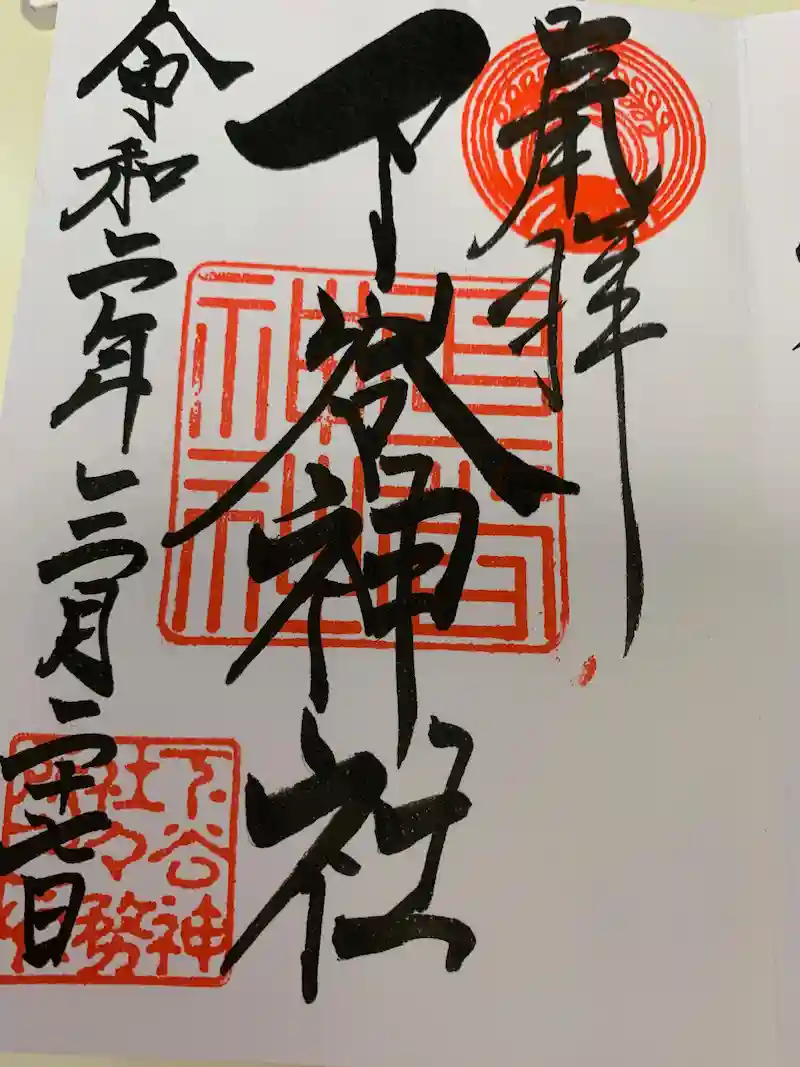 奉拝
下谷神社
令和二年三月二十七日
下谷神
社々務
所